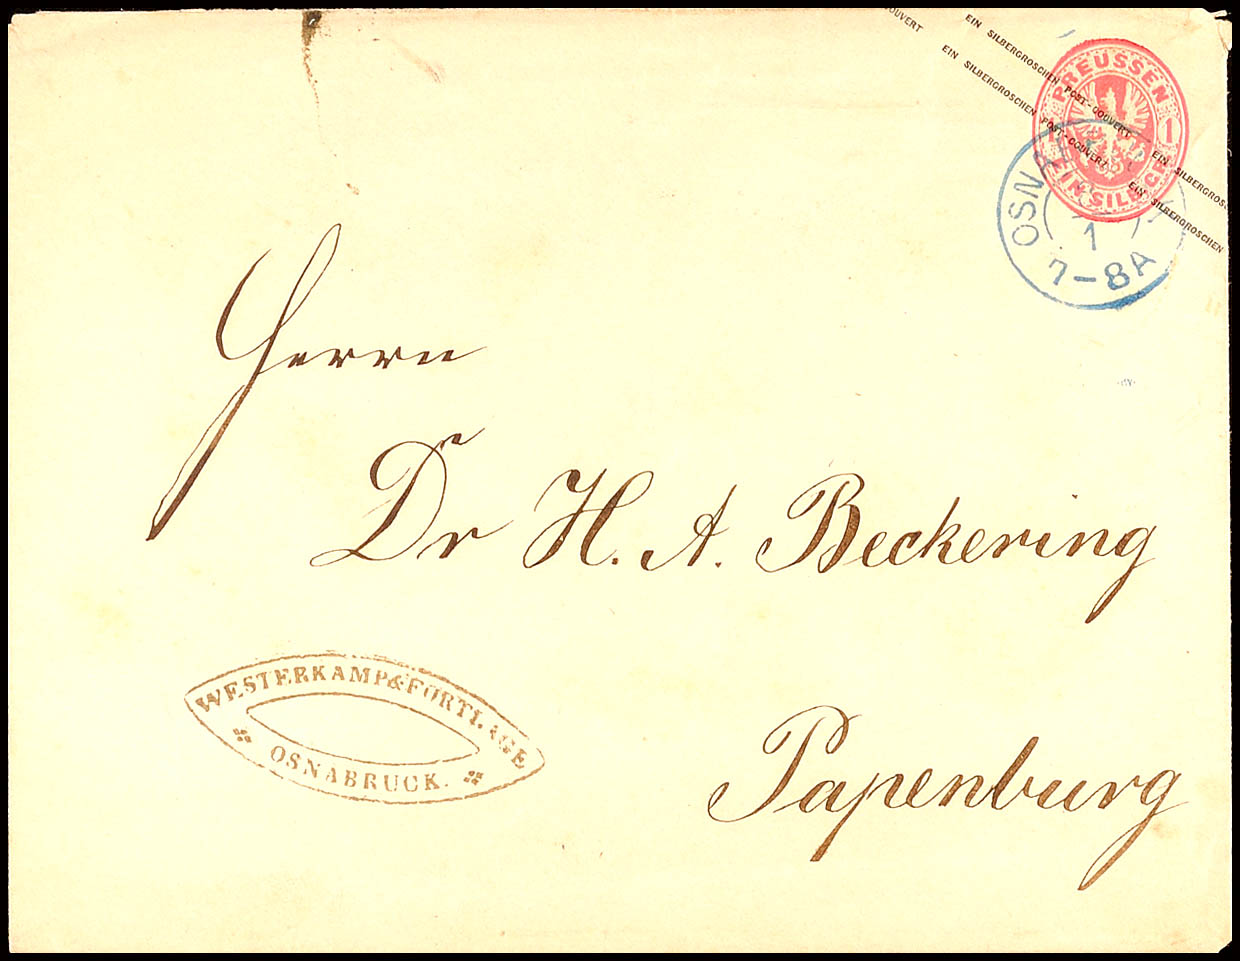 COUVERT
EIN SILBERGROSCHEN POST-COUVERT EIN SILBERGROS
EIN SILBERGROSCHEN POST-COUVERT EIN SILBERGROSCHEN
PREUSSEN
1 1
EIN SILB. GR.
1
7-8A
Herrn
Dr H. A. Beckering
WESTERKAMP & FORTLAGE
OSNABRUCK.
Papenburg